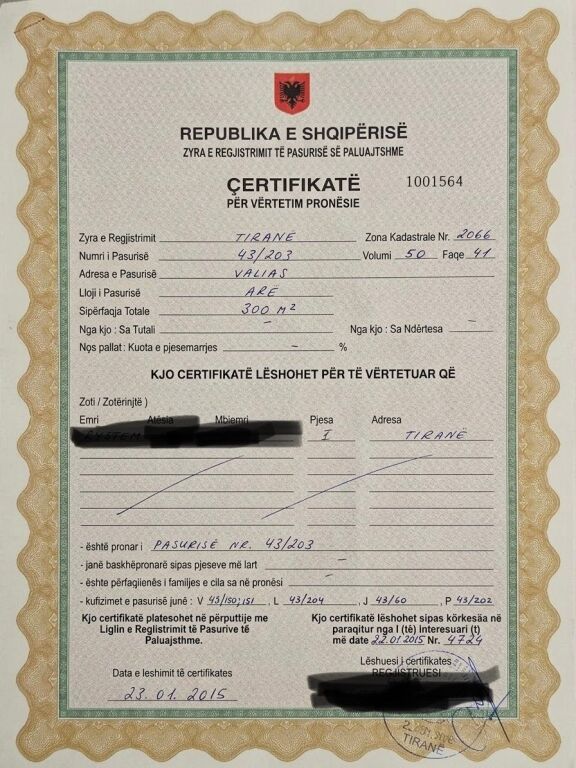 REPUBLIKA E SHQIPËRISË
ZYRA E REGJISTRIMIT TË PASURISË SË PALUAJTSHME
ÇERTIFIKATË 1001564
PËR VËRTETIM PRONËSIE
Zyra e Regjistrimit TIRANE Zona Kadastrale Nr. 2066
Numri i Pasurisë 43/203 Volumi 50 Faqe 41
Adresa e Pasurisë VALIAS
Lloji i Pasurisë ARË
Sipërfaqja Totale 300 m²
Nga kjo : Sa Tutali - Nga kjo : Sa Ndërtesa -
Nqs pallat : Kuota e pjesemarrjes - %
KJO CERTIFIKATË LËSHOHET PËR TË VËRTETUAR QË
Zoti / Zotërinjtë )
Emri Atësia Mbiemri Pjesa Adresa
I TIRANË
- është pronar i PASURISË NR. 43/203
- janë bashkëpronarë sipas pjeseve më lart -
- është përfaqiienës i familjes e cila sa në pronësi -
- kufizimet e pasurisë junë : V 43/150;151 , L 43/204 , J 43/60 , P 43/202
Kjo certifikatë platesohet në përputtije me
Liglin e Reglistrimit të Pasurive të
Paluajthsme.
Kjo certifikatë lëshohet sipas körkesäa në
paraqitur nga I (të) Interesuari (t)
më date 22.01.2015 Nr. 4724
Data e leshimit të certifikates
23.01.2015
Lëshuesi i certifikates
REGJISTRUESI
TIRANË